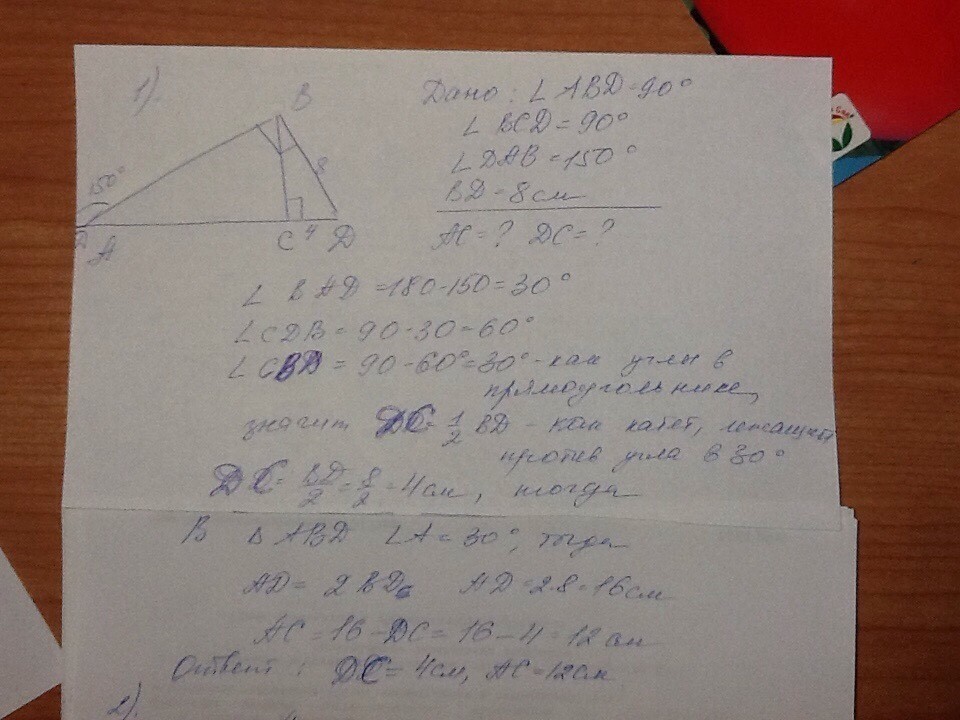 1).
B
150°
8
A
C 4 D
Дано: ∠ ABD=90°
∠ BCD=90°
∠ DAB=150°
BD=8см
AC=? DC=?
∠ BAD=180-150=30°
∠CDB=90-30=60°
∠CBD=90-60°=30°-как углы в
прямоугольнике,
значит DC=1/2 BD - как катет, лежащий
против угла в 30°
DC=BD/2=8/2=4см, тогда
В Δ ABD ∠A=30°, тогда
AD=2BD. AD=2·8=16см
AC=16-DC=16-4=12см
Ответ: DC=4см, AC=12см
2).